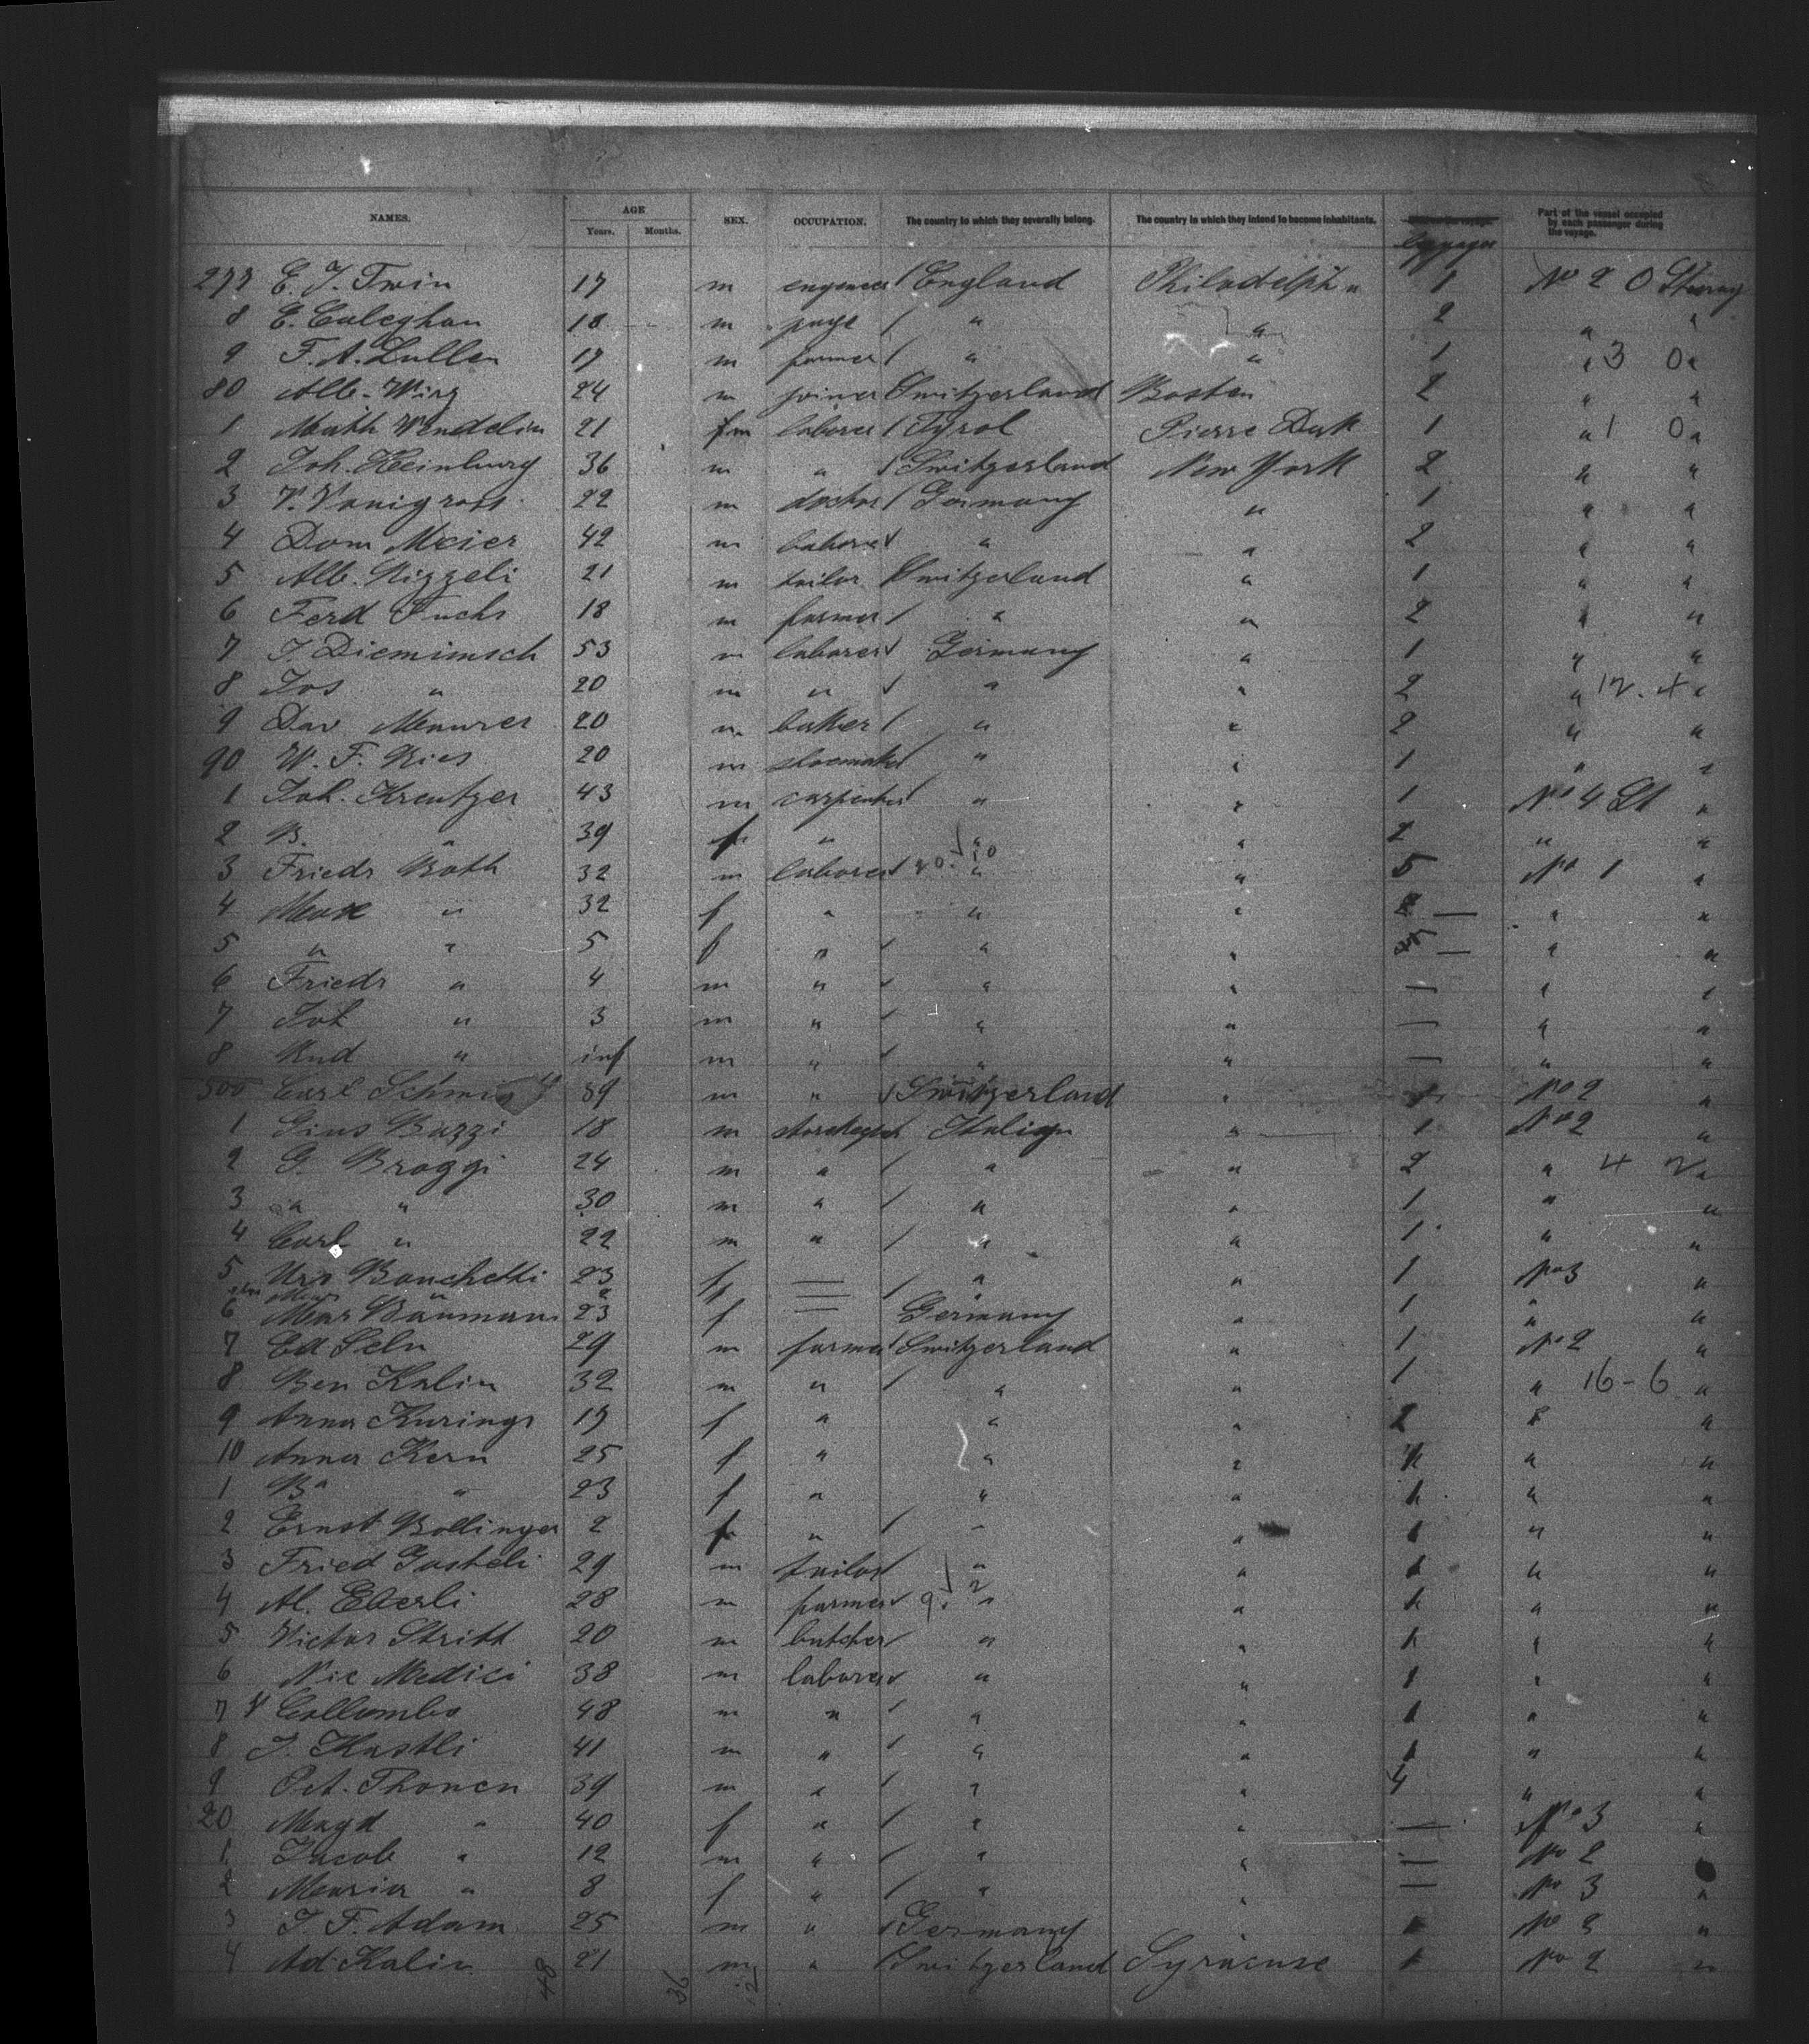 NAMES. AGE SEX. OCCUPATION. The country to which they severally belong. The country in which they intend to become inhabitants. Part of the vessel occupied by each passenger during the voyage.
Years. Months.
277 E. J. Twin 17 m engineer / England Philadelph a 1 No 2 0 Steerag
8 E. Caleghan 18 m page / " " 2 " "
9 F. A. Lullen 17 m farmer / " " 1 " 3 0 "
80 Alb. Wirz 24 m joiner Switzerland Boston 2 " "
1 Math Wendelin 21 m laborer / Tyrol Pierre Dak 1 " 1 0 "
2 Joh. Kleinburg 36 m " / Switzerland New York 2 " "
3 22 m doctor / Germany " 1 " "
4 Dom Meier 42 m laborer / " " 2 " "
5 Alb. Nizzeli 21 m tailor Switzerland " 1 " "
6 Ferd Fuchs 18 m farmer / " " 2 " "
7 J. Diemimsch 53 m laborer / Germany " 1 " "
8 Jos " 20 m " / " " 2 " 12. 4 "
9 Dav Meurer 20 m baker / " " 2 " "
90 W. F. Ries 20 m shoemaker / " " 1 " "
1 Joh. Kreutzer 43 m carpenter / " " 1 No 4 "
2 B. " 39 f " " " 2 " "
3 Friedr Roth 32 m laborer / " " 5 No 1 "
4 " 32 f " " " — " "
5 " " 5 f " / " " — " "
6 Friedr " 4 m " / " " — " "
7 Joh " 3 m " / " " — " "
8 Rud " inf m " / " " — " "
300 Carl Schmid 39 m " / Switzerland " 1 No 2 "
1 Gius Bazzi 18 m / Italian " 1 No 2 "
2 G. Broggi 24 m " / " " 2 " 4 2 "
3 " " 30 m " / " " 1 " "
4 Carl " 22 m " / " " 1 " "
5 Urs Banchetti 23 f — / " " 1 No 3 "
6 Mar Baumann 23 f — Germany " 1 " "
7 Ed Seln 29 m farmer / Switzerland " 1 No 2 "
8 Ben Kalin 32 m " / " " 1 " 16 - 6 "
9 Anna Kurings 17 f " " " 2 " "
10 Anna Kern 25 f " " " " "
1 " 23 f " " " 1 " "
2 Ernst Bollinger 2 " / " " 1 " "
3 Fried Gasteli 29 m tailor / " " 1 " "
4 Al. Eberli 28 m farmer / " " 1 " "
5 Victor Stritt 20 m butcher / " " 1 " "
6 Nic Medici 38 m laborer / " " 1 " "
7 V Collombo 48 m " / " " 1 " "
8 J. Kastli 41 m " / " " 1 " "
9 Pet. Thonen 39 m " / " " 4 " "
20 Magd " 40 f " / " " — No 3 "
1 Jacob " 12 m " / " " — No 2 "
2 Maria " 8 f " / " " — No 3 "
3 J. F. Adam 25 m " / Germany " 1 No 2 "
4 Ad Kalin 21 m " / Switzerland Syracuse 1 No 2 "
48 36 12